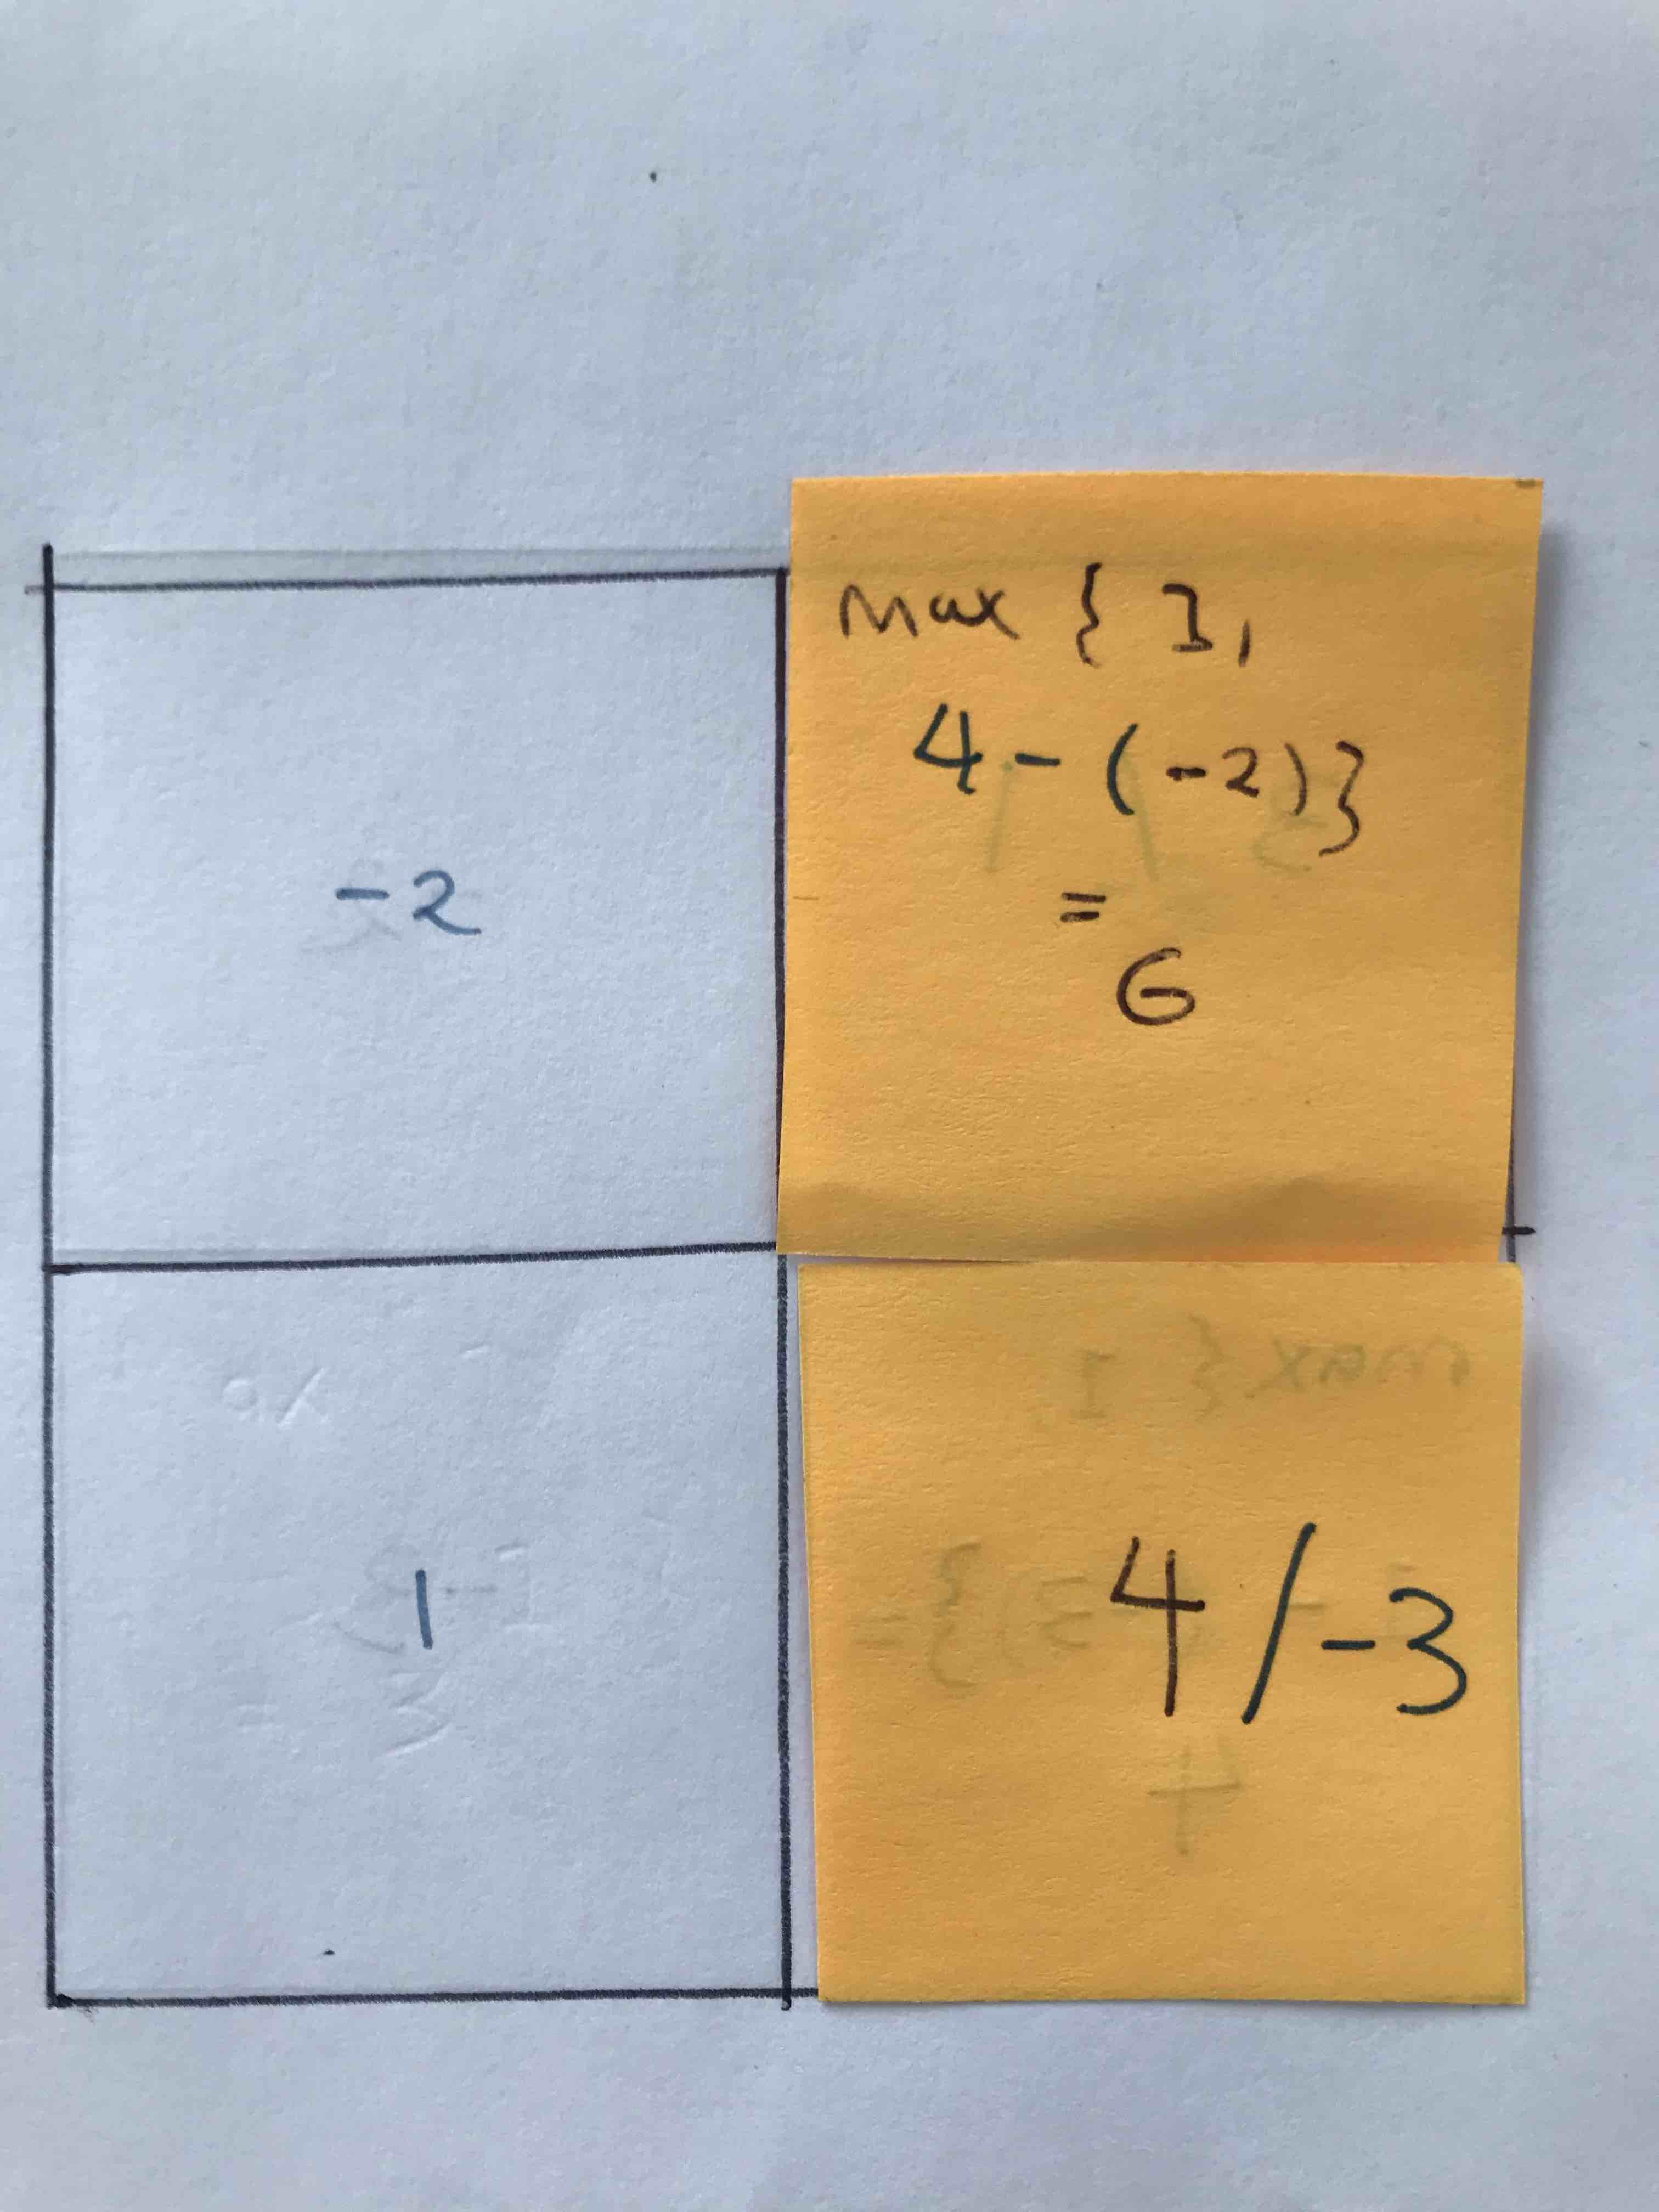 -2
max { 1,
4 - (-2)}
=
6
1
4 / -3